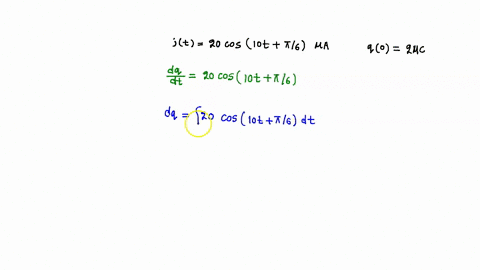 j(t) = 20 cos (10t + π/6) μA q(0) = 2μC
dq/dt = 20 cos (10t + π/6)
dq = ∫20 cos (10t + π/6) dt